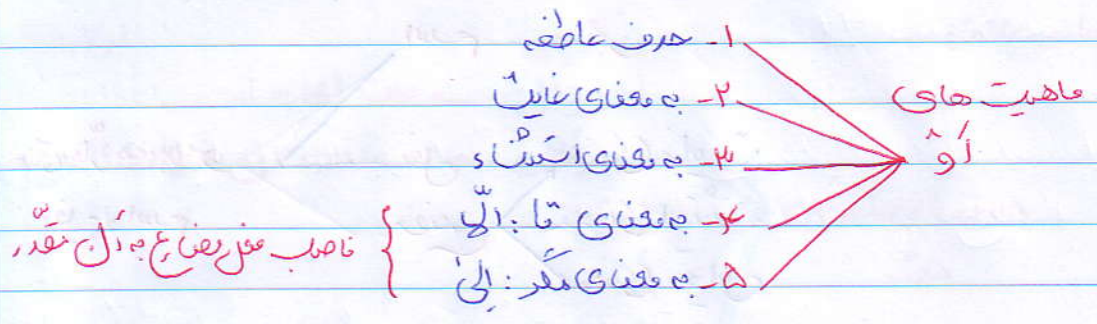 ماهیت های
أوْ
۱- حرف عاطفه
۲- به معنای غایت
۳- به معنای استثناء
۴- به معنای تا : إلّا
۵- به معنای مگر : إلیٰ
ناصب فعل مضارع به أن مقدّر